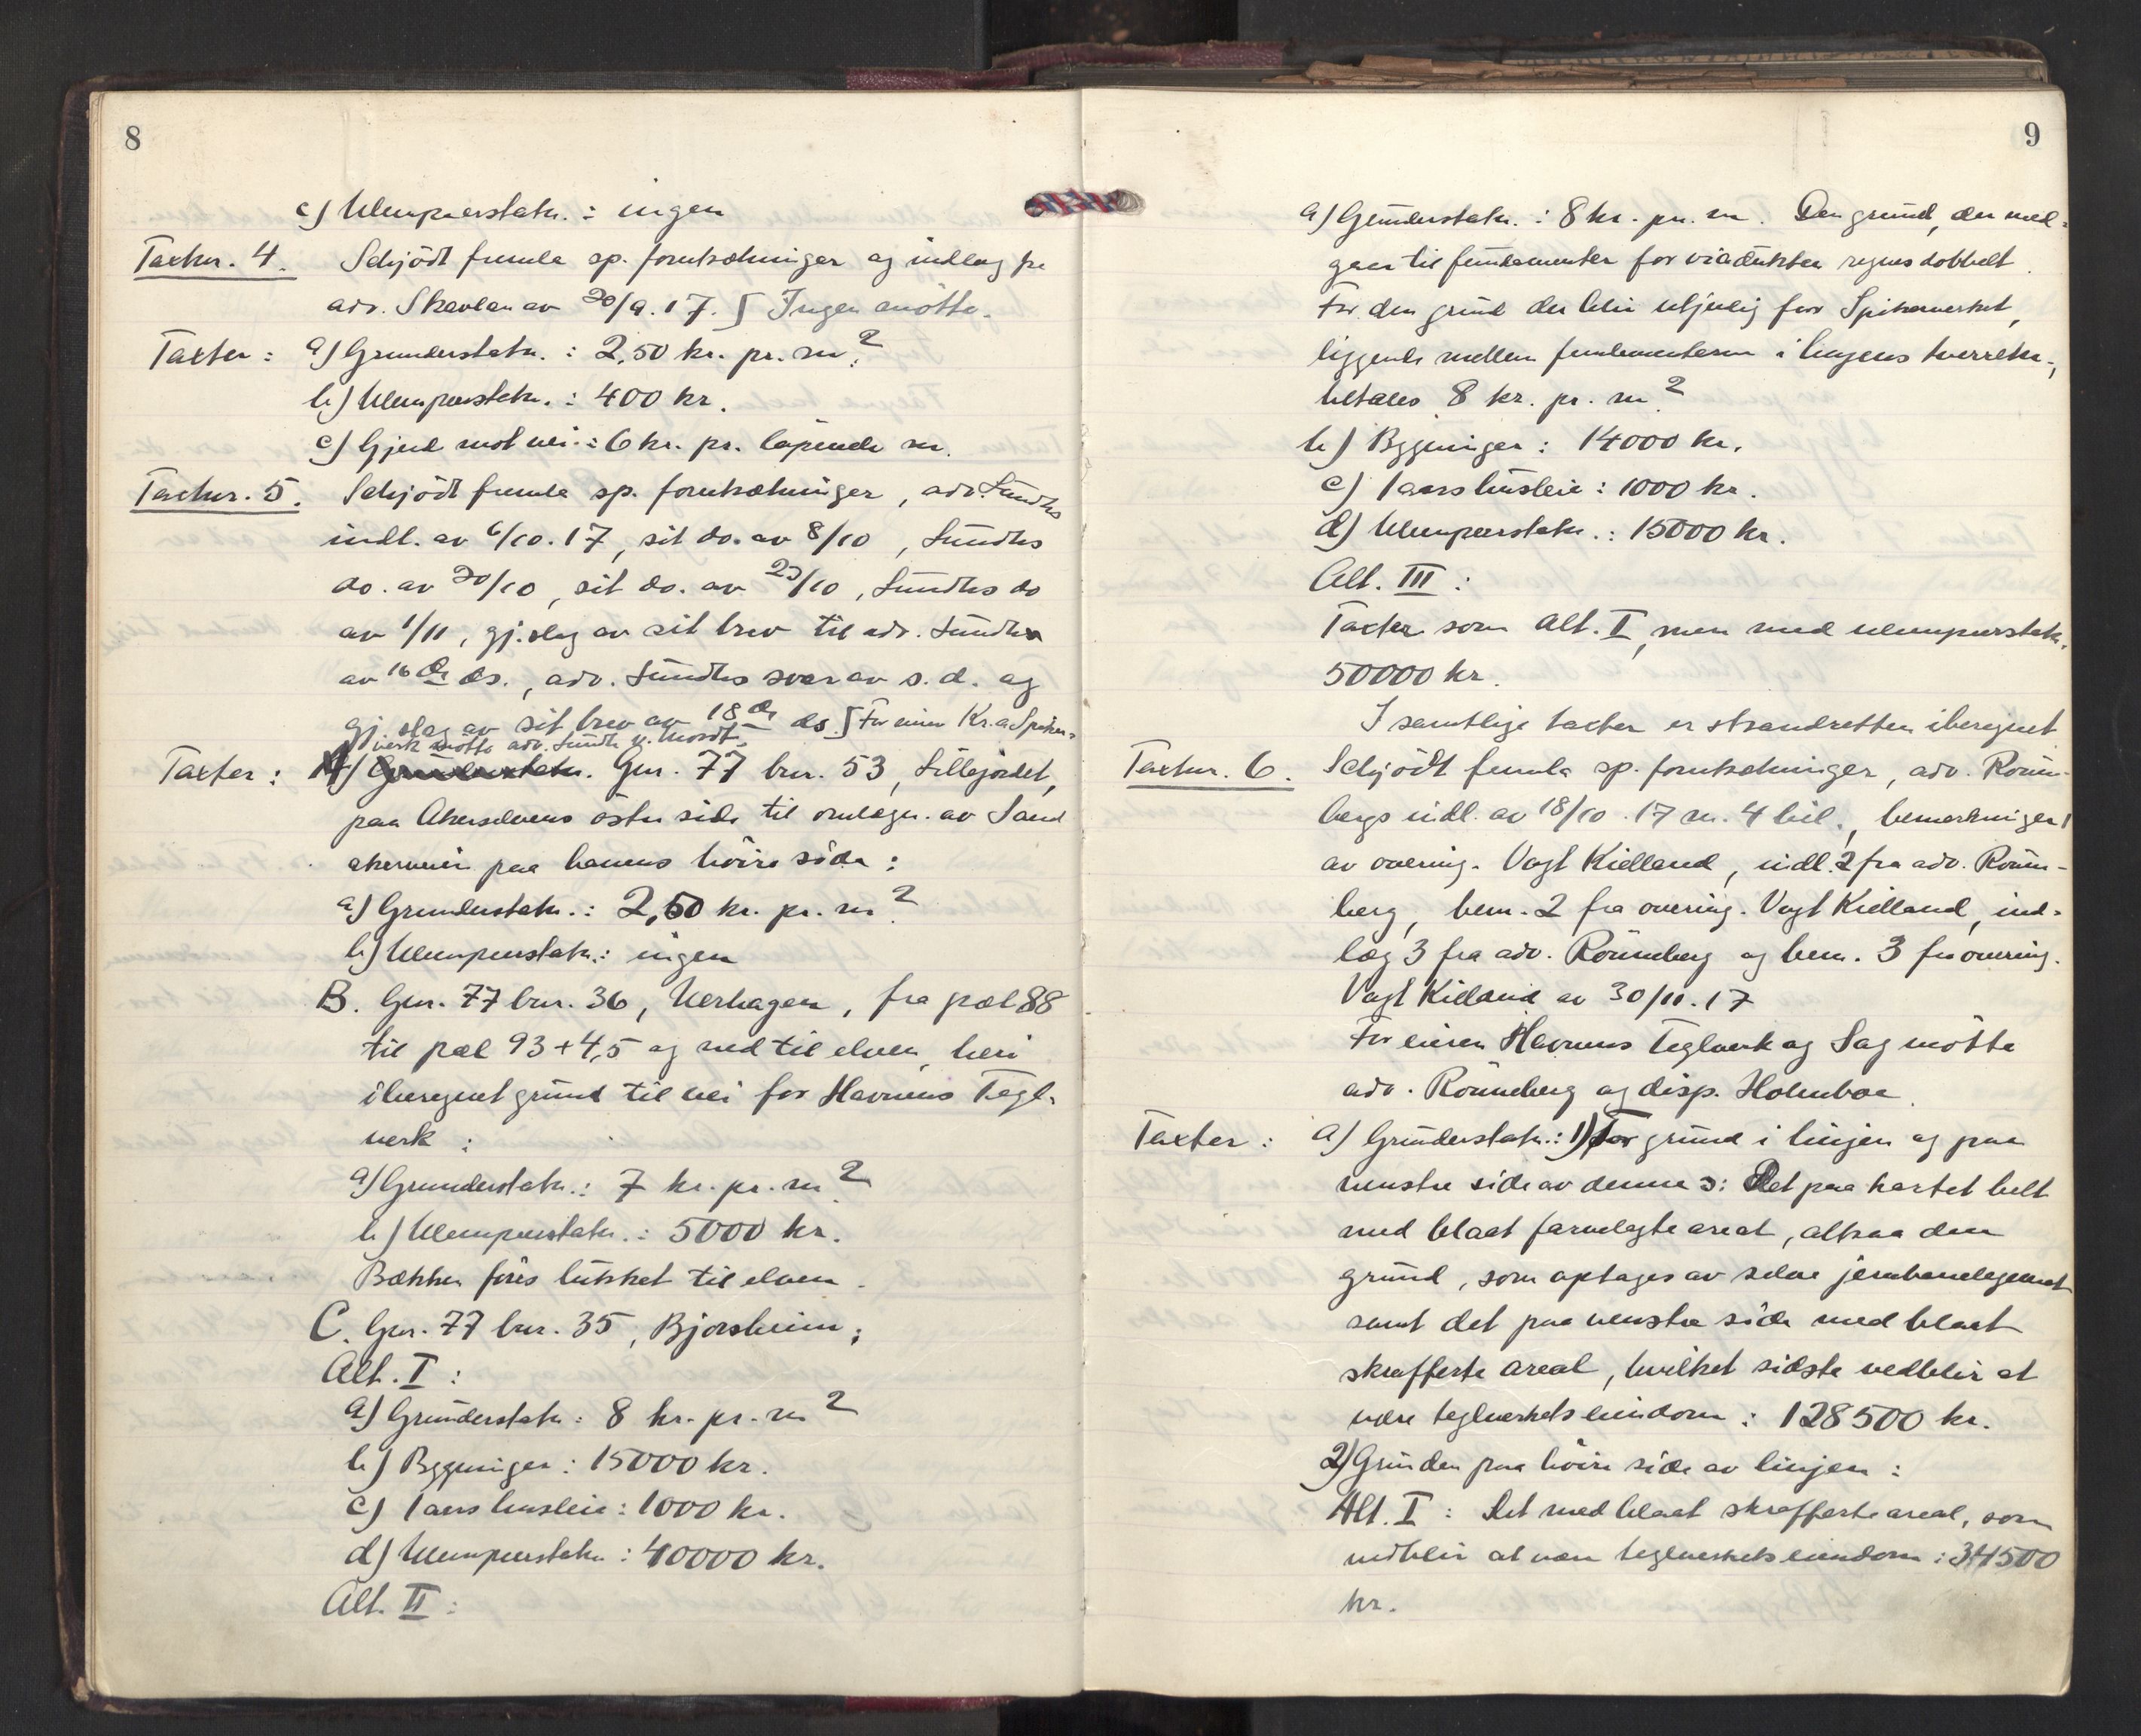 8
c) Ulemperstatn.: ingen
Taxtnr. 4. Schjödt fremla sp. forutsætninger og indlæg fra
adv. Skavlan av 20/9.17. ⌡ Ingen mötte.
Taxter: a) Grunderstatn.: 2,50 kr. pr. m²
b) Ulemperstatn.: 400 kr.
c) Gjerd mot vei: 6 kr. pr. löpende m.
Taxtnr. 5. Schjödt fremla sp. forutsætninger, adv. Sundts
indl. av 6/10.17, sit do. av 8/10, Sundts
do. av 20/10, sit do. av 23/10, Sundts do
av 1/11, gj.slag av sit brev til adv. Sundt
av 16de ds., adv. Sundts svar av s.d. og
gj.slag av sit brev av 18de ds. ⌡ For eieren Kr.a Spiker-
verk mötte adv. Sundt v. Mordt.
Taxter: A) Grunderstatn. Gnr. 77 bnr. 53, Lillejordet,
paa Akerselvens östre side til omlægn. av Sand
akerveien paa banens höire side:
a) Grunderstatn.: 2,50 kr. pr. m²
b) Ulemperstatn.: ingen
B. Gnr. 77 bnr. 36, Verhagen, fra pæl 88
til pæl 93+4,5 og ned til elven, heri
iberegnet grund til vei for Havnens Tegl-
verk:
a) Grunderstatn.: 7 kr. pr. m²
b) Ulemperstatn.: 5000 kr.
Bækken föres lukket til elven.
C. Gnr. 77 bnr. 35, Bjorsheim;
Alt. I:
a) Grunderstatn: 8 kr. pr. m²
b) Bygninger: 15000 kr.
c) 1 aars husleie: 1000 kr.
d) Ulemperstatn: 40000 kr.
Alt. II:
9
a) Grunderstatn.: 8 kr. pr. m. Den grund, der med-
gaar til fundamenter for viadukten regnes dobbelt.
For den grund der blir utjenlig for Spikerverket,
liggende mellem fundamenterne i linjens tverretn.,
betales 8 kr. pr. m²
b) Bygninger: 14000 kr.
c) 1 aars husleie: 1000 kr.
d) Ulemperstatn.: 15000 kr.
Alt. III:
Taxter som Alt. I, men med ulemperstatn.
50000 kr.
I samtlige taxter er strandretten iberegnet
Taxtnr. 6. Schjödt fremla sp. forutsætninger, adv. Rönne-
bergs indl. av 18/10.17 m. 4 bil., bemerkninger 1
av overing. Vogt Kielland, indl. 2 fra adv. Rönne-
berg, bem. 2 fra overing. Vogt Kielland, ind-
læg 3 fra adv. Rönneberg og bem. 3 fra overing.
Vogt Kielland av 30/11.17
For eieren Havnens Teglverk og Sag mötte
adv. Rönneberg og disp. Holmboe.
Taxter: a) Grunderstatn.: 1) For grund i linjen og paa
venstre side av denne ɔ: Det paa kartet helt
med blaat farvelagte areal, altsaa den
grund, som optages av selve jernbanelegemet
samt det paa venstre side med blaat
skrafferte areal, hvilket sidste vedblir at
være teglverkets eiendom: 128500 kr.
2) Grunden paa höire side av linjen:
Alt. I: Det med blaat skrafferte areal, som
vedblir at være teglverkets eiendom: 34500
kr.